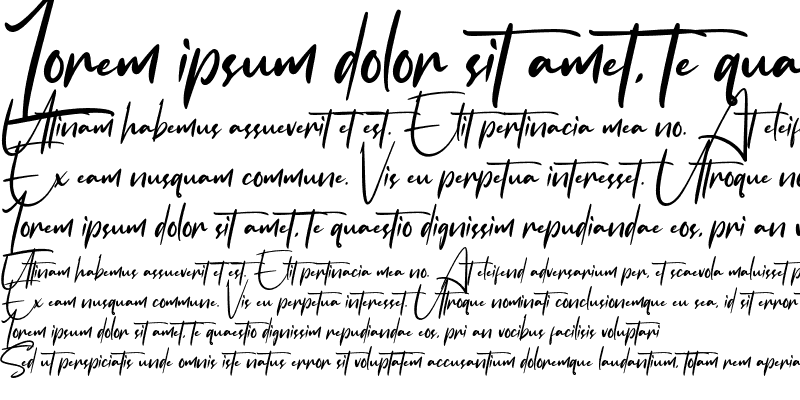 Lorem ipsum dolor sit amet, te qua
Utinam habemus assueverit et est. Elit pertinacia mea no. At eleif
Ex eam nusquam commune. Vis eu perpetua interesset. Utroque no
Lorem ipsum dolor sit amet, te quaestio dignissim repudiandae eos, pri an v
Utinam habemus assueverit et est. Elit pertinacia mea no. At eleifend adversarium per, et scaevola maluisset p
Ex eam nusquam commune. Vis eu perpetua interesset. Utroque nominati conclusionemque eu sea, id sit error
Lorem ipsum dolor sit amet, te quaestio dignissim repudiandae eos, pri an vocibus facilisis voluptari
Sed ut perspiciatis unde omnis iste natus error sit voluptatem accusantium doloremque laudantium, totam rem aperia